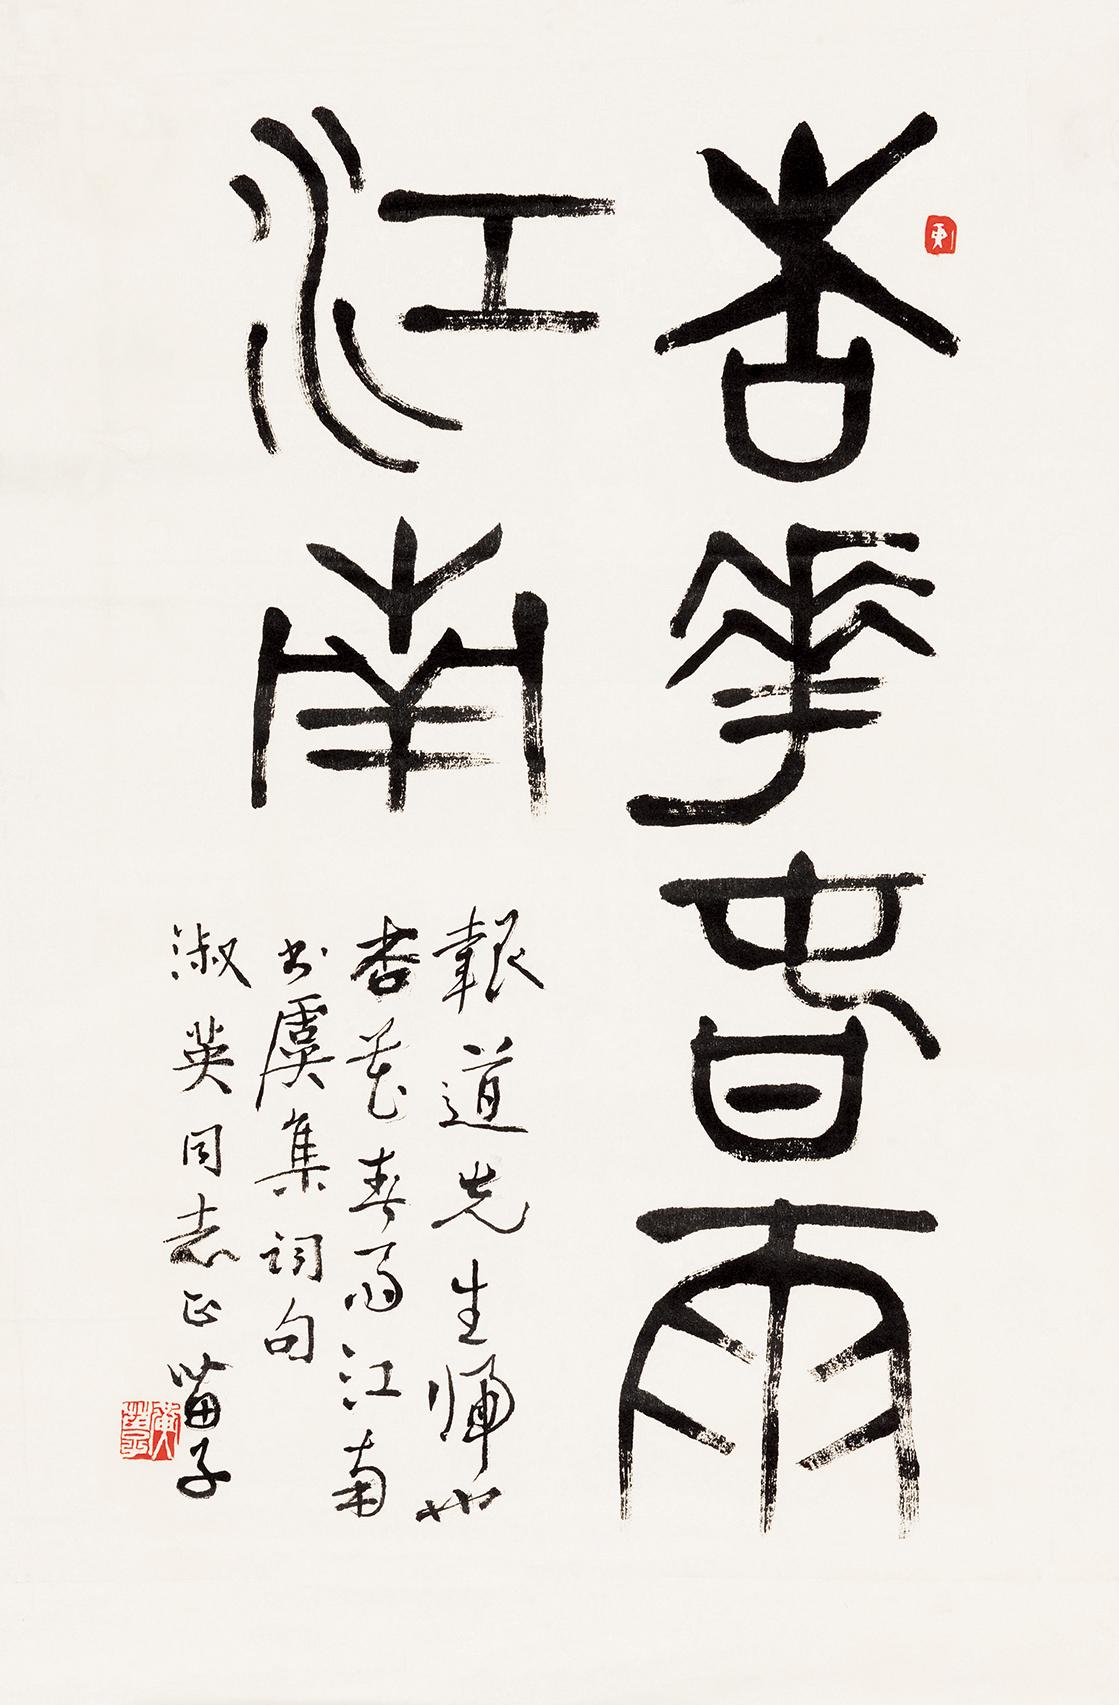 杏華春雨
江南
報道先生歸也
杏花春雨江南
书虞集词句
淑英同志正 苗子